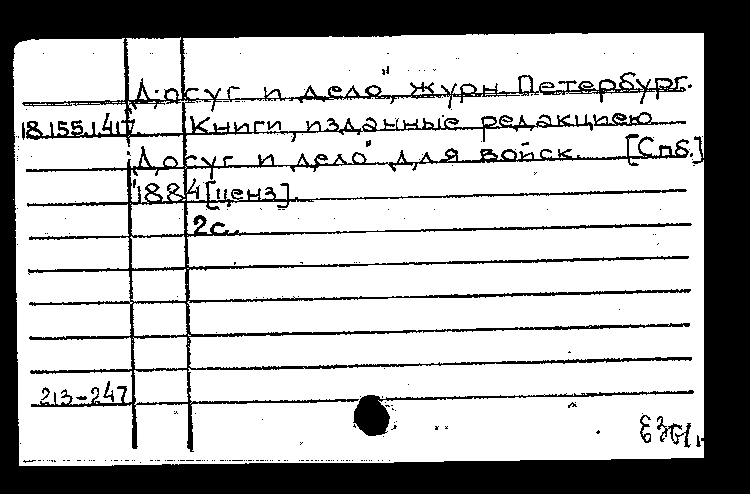 "Досуг и дело", журн. Петербург.
18.155.1.417. Книги, изданные редакциею
"Досуг и дело" для войск. [Спб.]
1884 [ценз].
2 с.
213-247